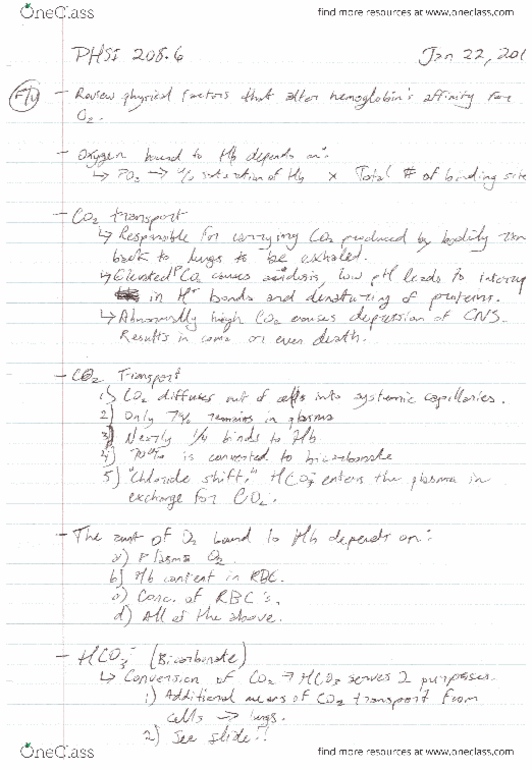 OneClass find more resources at www.oneclass.com
PHSI 208.6 Jan 22, 201
F/U - Review physical factors that alter hemoglobin's affinity for
O2.
- Oxygen bound to Hb depends on:
↳ PO2 → % saturation of Hb × Total # of binding site
- CO2 transport
↳ Responsible for carrying CO2 produced by bodily
back to lungs to be exhaled.
↳ Elevated PCO2 causes acidosis, low pH leads to interrup
in H+ bonds and denaturing of proteins.
↳ Abnormally high CO2 causes depression of CNS.
Results in coma or even death.
- CO2 Transport
1) CO2 diffuses out of cells into systemic capillaries.
2) Only 7% remains in plasma
3) Nearly 1/4 binds to Hb
4) 70% is converted to bicarbonate
5) "Chloride shift," HCO3- enters the plasma in
exchange for Cl-.
- The amt of O2 bound to Hb depends on:
a) Plasma O2
b) Hb content in RBC.
c) Conc. of RBC's.
d) All of the above.
- HCO3- (Bicarbonate)
↳ Conversion of CO2 → HCO3 serves 2 purposes.
1) Additional means of CO2 transport from
cells → lungs.
2) See slide!!
OneClass find more resources at www.oneclass.com